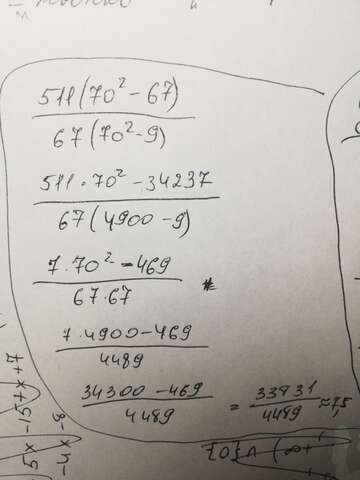 511(70² - 67)
67(70² - 9)
511 · 70² - 34237
67(4900 - 9)
7 · 70² - 469
67 · 67
7 · 4900 - 469
4489
34300 - 469
4489
= 33831 / 4489 ≈ 7,5
5x - 15 + x + 7